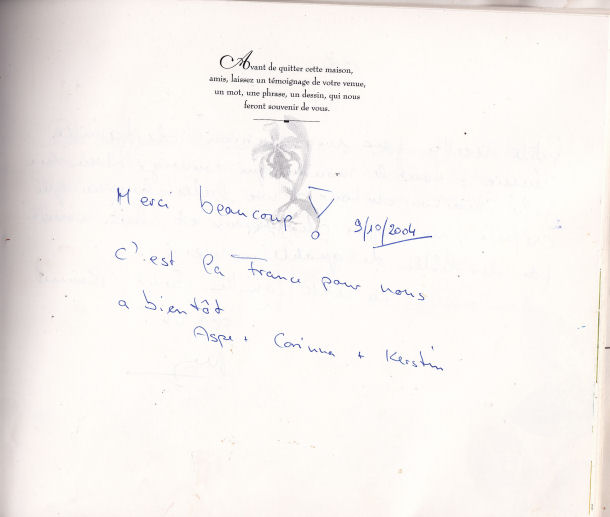 Avant de quitter cette maison,
amis, laissez un témoignage de votre venue,
un mot, une phrase, un dessin, qui nous
feront souvenir de vous.
Merci beaucoup !
9/10/2004
C'est la France pour nous
a bientôt
Aspe + Corinna + Kerstin